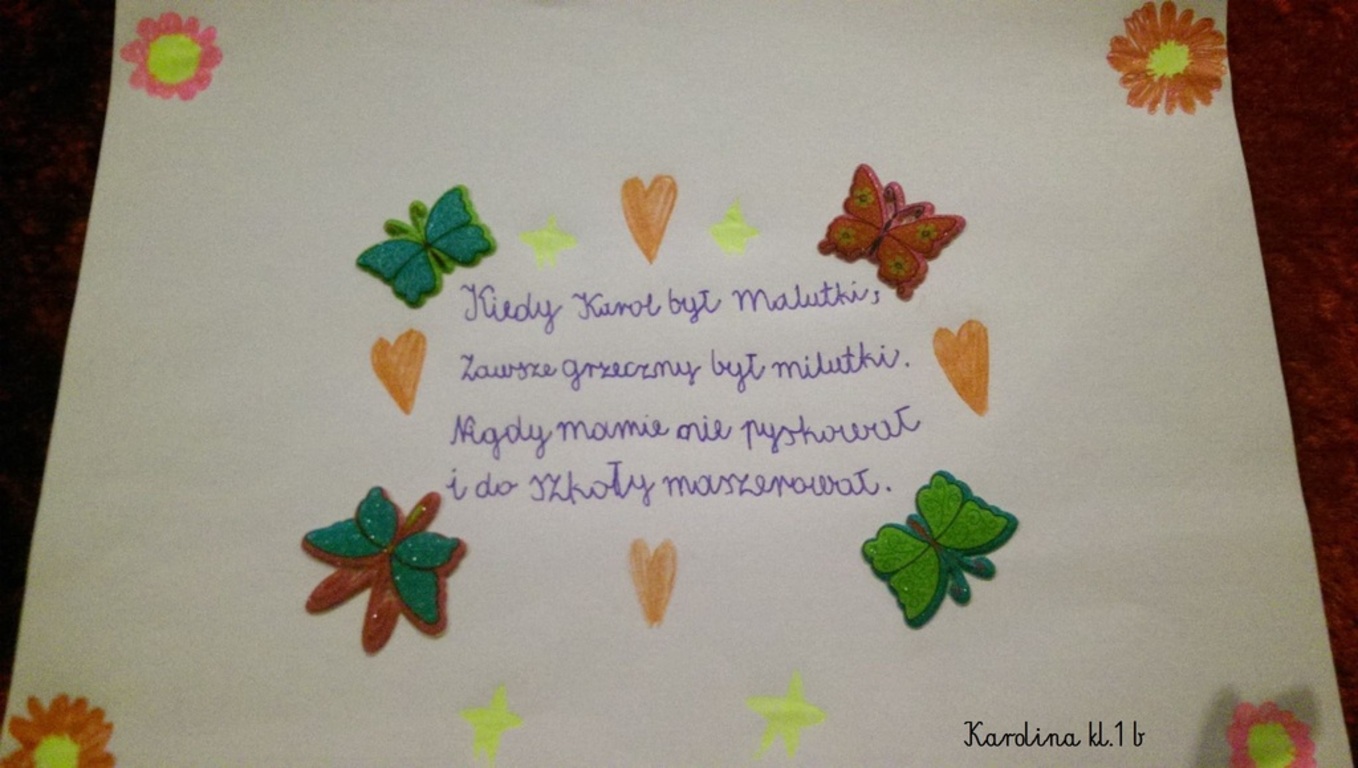 Kiedy Karol był Malutki,
Zawsze grzeczny był milutki.
Nigdy mamie nie pyskował
i do szkoły maszerował.
Karolina kl.1 b